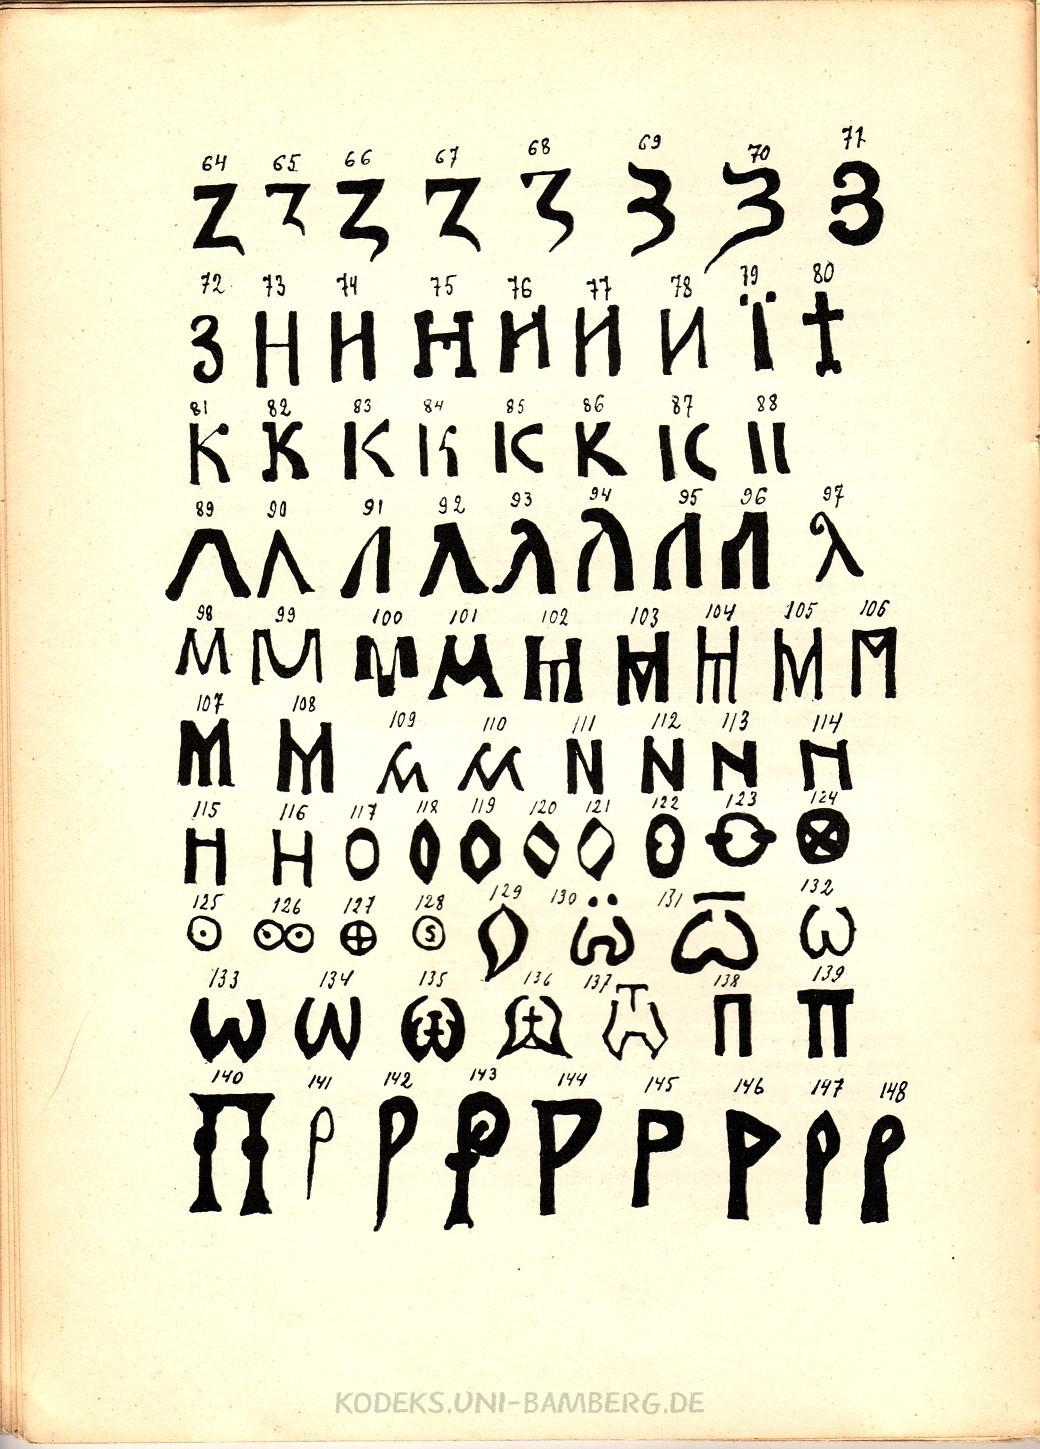 64 65 66 67 68 69 70 71
Z Z Z Z З З З З
72 73 74 75 76 77 78 79 80
З H Н Н И И И Ї †
81 82 83 84 85 86 87 88
К К К К К К К II
89 90 91 92 93 94 95 96 97
Л Л Л Л Л Л Л Л λ
98 99 100 101 102 103 104 105 106
М М М М М М М М М
107 108 109 110 111 112 113 114
М М М М N N N П
115 116 117 118 119 120 121 122 123 124
Н Н О О О О О О О О
125 126 127 128 129 130 131 132
ʘ ꙭ ⊕ Ⓢ О ѡ̈ ѡ̅ ѡ
133 134 135 136 137 138 139
ѡ ѡ ѡ ѡ Ѿ П П
140 141 142 143 144 145 146 147 148
П Р Р Р Р Р Р Р Р
KODEKS.UNI-BAMBERG.DE